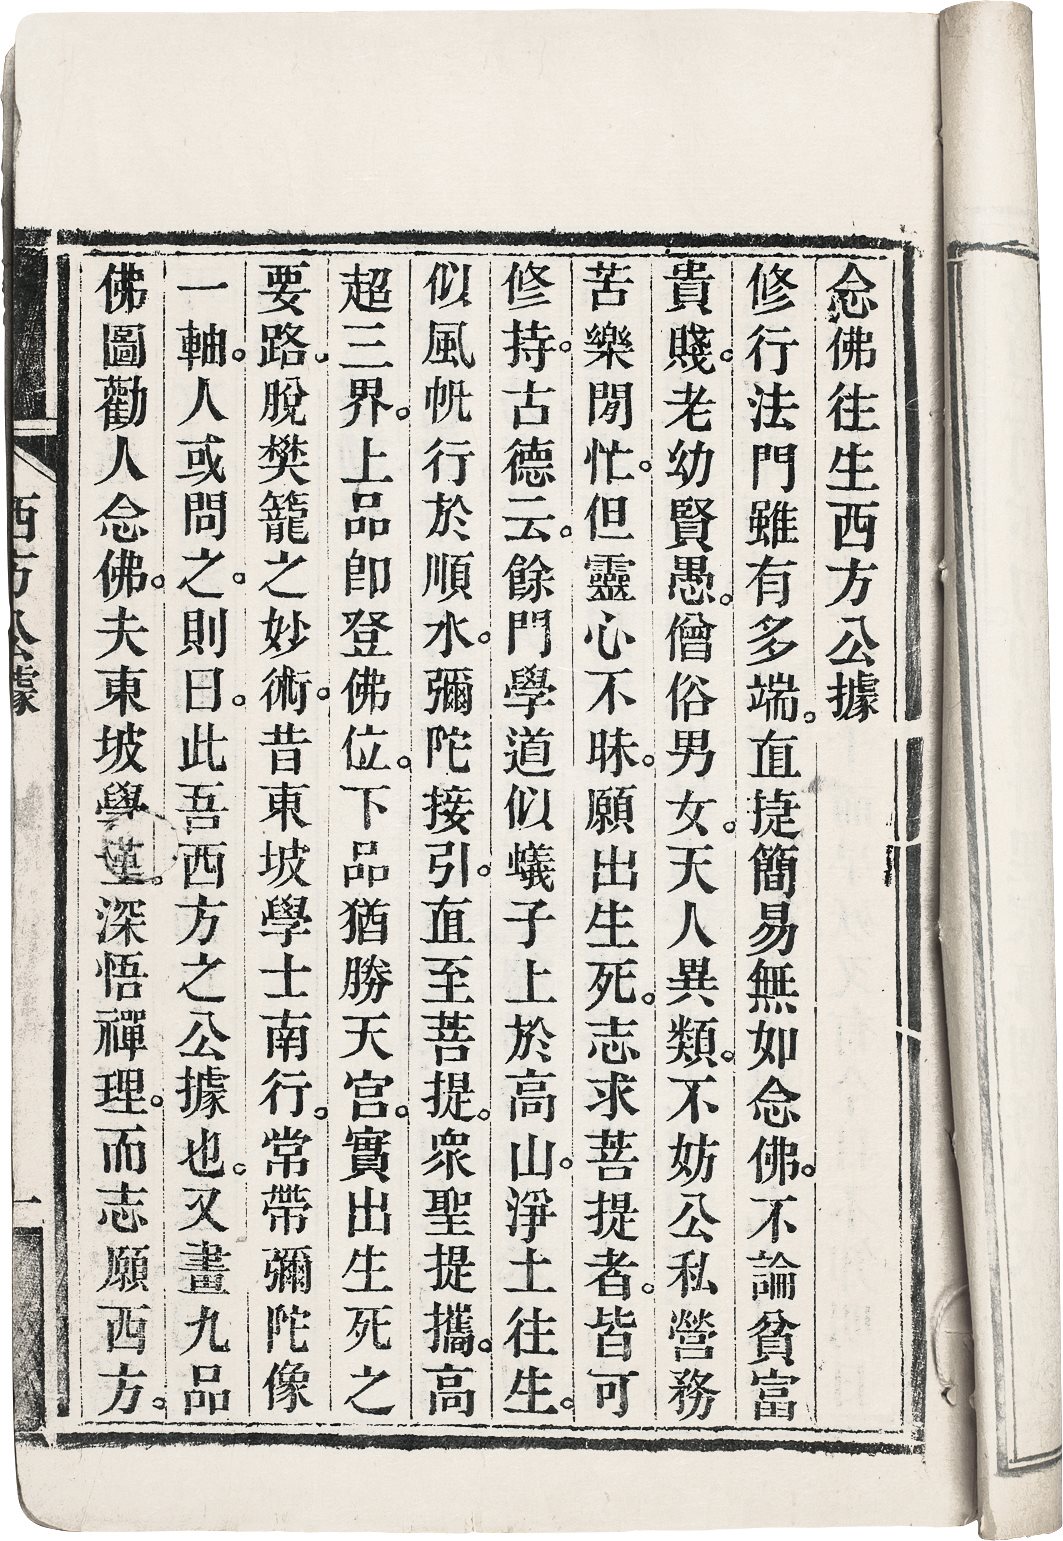 念佛往生西方公據
修行法門雖有多端。直捷簡易無如念佛。不論貧富
貴賤。老幼賢愚。僧俗男女。天人異類。不妨公私營務
苦樂閒忙。但靈心不昧。願出生死。志求菩提者。皆可
修持。古德云。餘門學道似蟻子上於高山。淨土往生。
似風帆行於順水。彌陀接引。直至菩提。眾聖提攜。高
超三界。上品卽登佛位。下品猶勝天宮。實出生死之
要路。脫樊籠之妙術。昔東坡學士南行。常帶彌陀像
一軸。人或問之。則曰。此吾西方之公據也。又畫九品
佛圖勸人念佛。夫東坡學深悟禪理。而志願西方。
西方公據
一